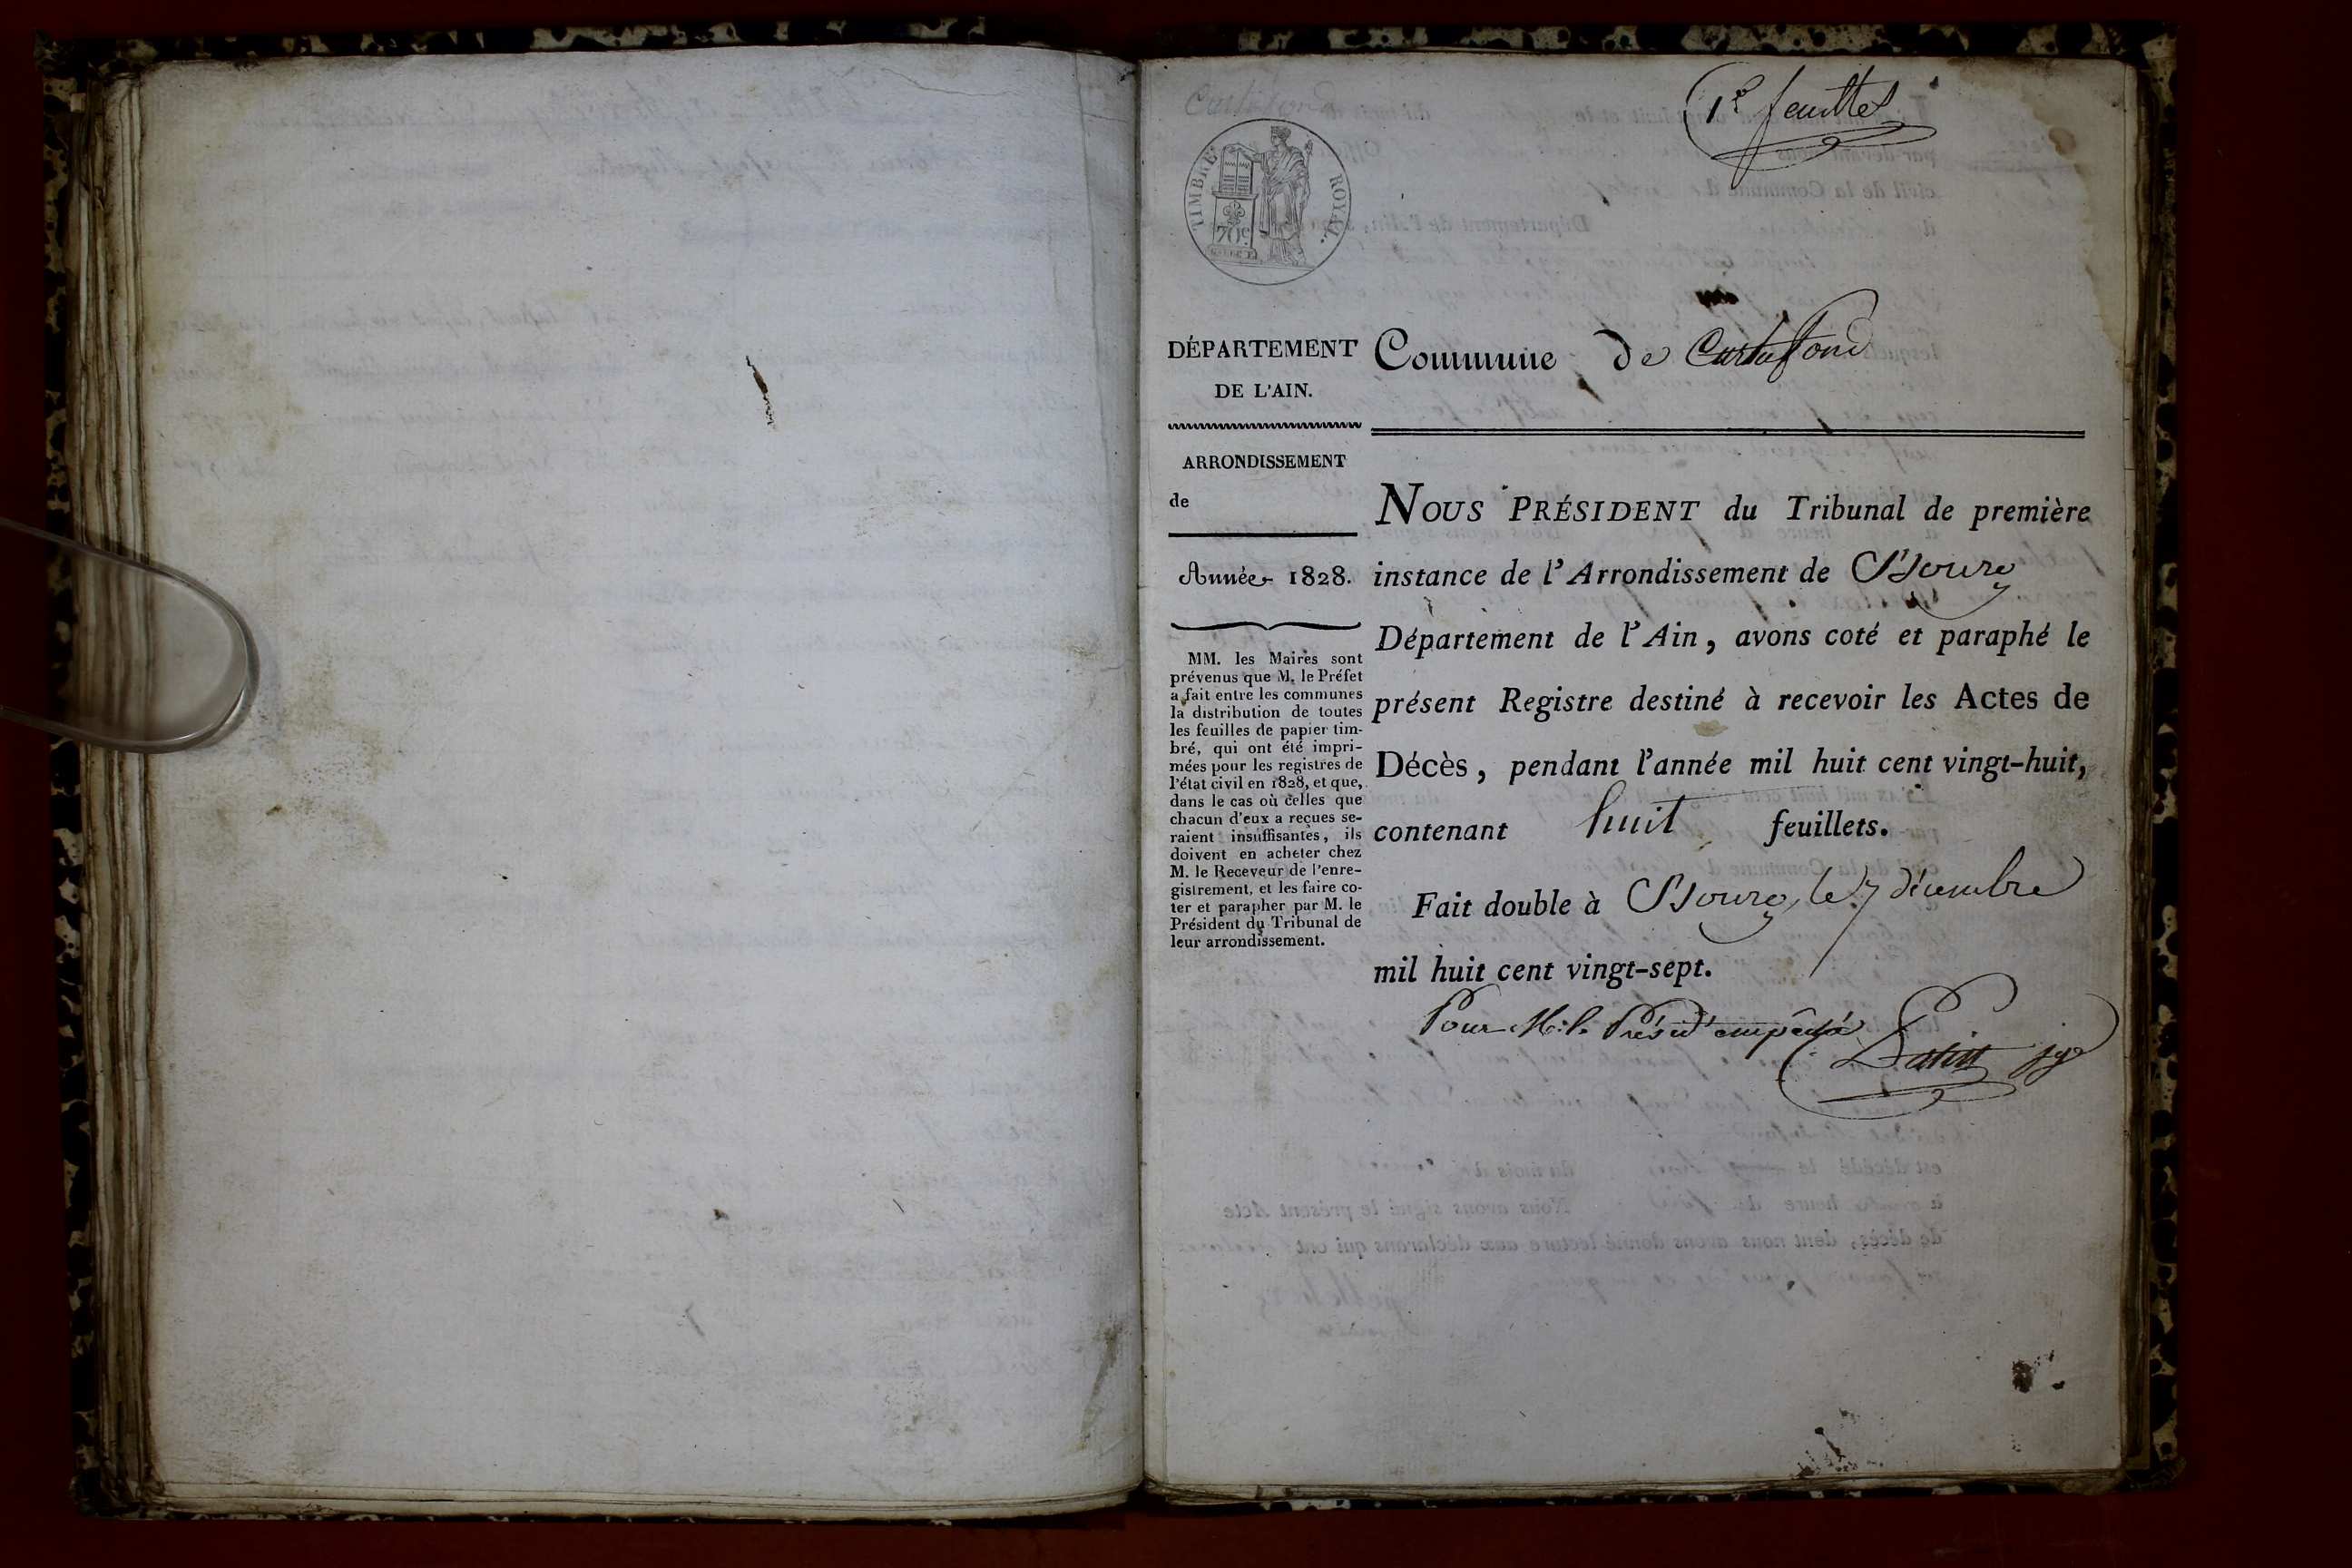 1er feuillet
TIMBRE ROYAL.
70c.
DÉPARTEMENT
DE L'AIN.
ARRONDISSEMENT
de
Année 1828.
MM. les Maires sont
prévenus que M. le Préfet
a fait entre les communes
la distribution de toutes
les feuilles de papier tim-
bré, qui ont été impri-
mées pour les registres de
l'état civil en 1828, et que,
dans le cas où celles que
chacun d'eux a reçues se-
raient insuffisantes, ils
doivent en acheter chez
M. le Receveur de l'enre-
gistrement, et les faire co-
ter et parapher par M. le
Président du Tribunal de
leur arrondissement.
Commune de Curtafond
NOUS PRÉSIDENT du Tribunal de première
instance de l'Arrondissement de Bourg
Département de l'Ain, avons coté et paraphé le
présent Registre destiné à recevoir les Actes de
Décès, pendant l'année mil huit cent vingt-huit,
contenant huit feuillets.
Fait double à Bourg, le 7 décembre
mil huit cent vingt-sept.
Pour M. le Présid' empêché